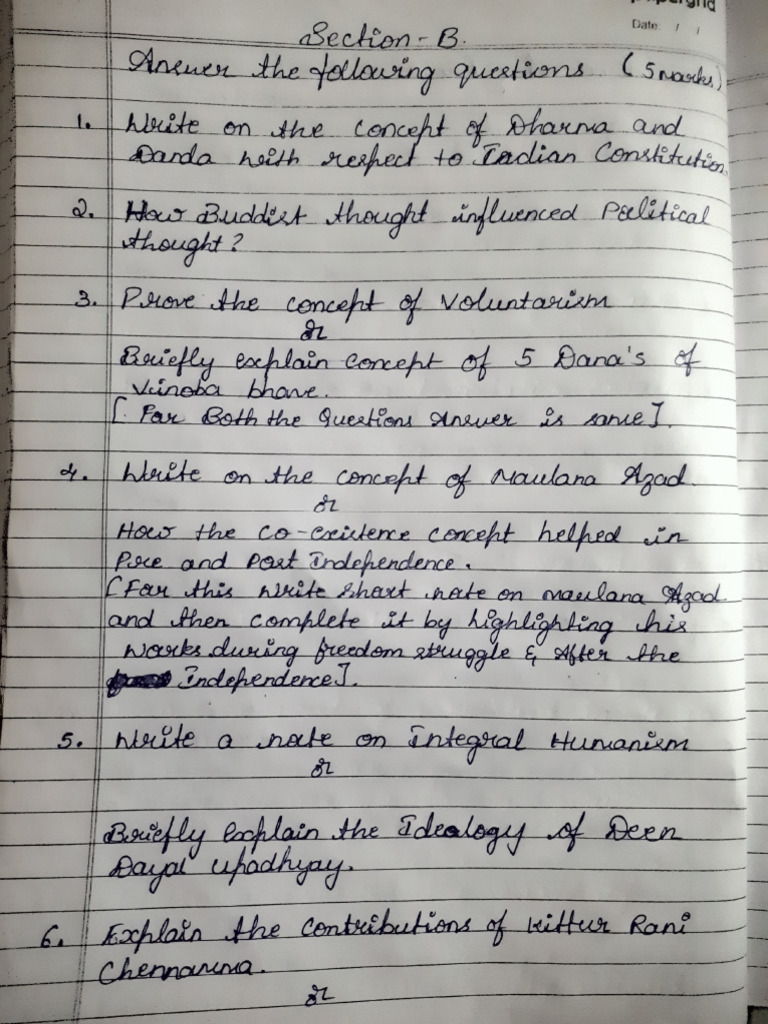 Date: / /
Section - B.
Answer the following questions. (5 Marks)
1. Write on the concept of Dharma and
Danda with respect to Indian Constitution.
2. How Buddist thought influenced Political
thought?
3. Prove the concept of Voluntarism
or
Briefly explain concept of 5 Dana's of
Vinoba bhave.
[ For Both the Questions Answer is same].
4. Write on the concept of Maulana Azad.
or
How the co-existence concept helped in
Pre and Post Independence.
[For this write short note on Maulana Azad
and then complete it by highlighting his
works during freedom struggle & After the
Independence].
5. Write a note on Integral Humanism
or
Briefly explain the Idealogy of Deen
Dayal Upadhyay.
6. Explain the contributions of Kittur Rani
Chennamma.
or